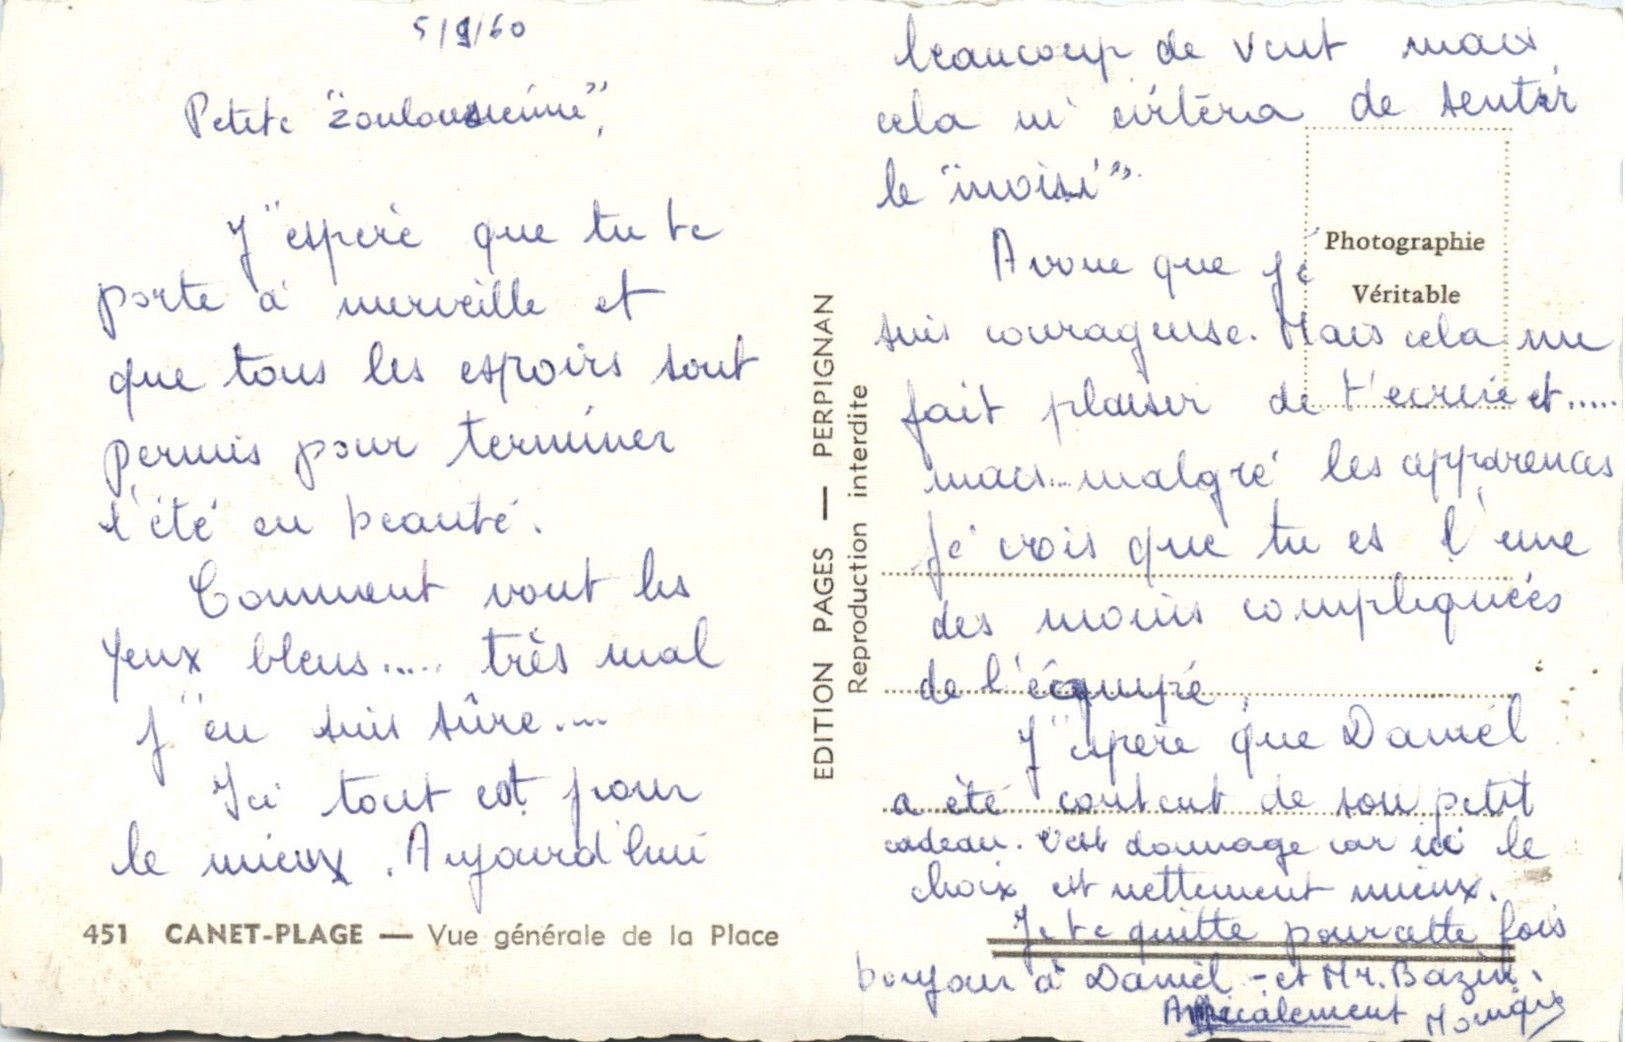 5/9/60
Petite "zoulousienne",
J'espère que tu te
porte à merveille et
que tous les espoirs sont
permis pour terminer
l'été en beauté.
Comment vont les
yeux bleus..... très mal
j'en suis sûre....
Ici tout est pour
le mieux. Aujourd'hui
451 CANET-PLAGE — Vue générale de la Place
EDITION PAGES — PERPIGNAN
Reproduction interdite
beaucoup de vent mais
cela m'évitera de sentir
le "moisi".
Avoue que je
suis courageuse. Mais cela me
fait plaisir de t'écrire et.....
mais... malgré les apparences
je crois que tu es l'une
des moins compliquées
de l'équipe.
J'espère que Daniel
a été content de son petit
cadeau. C'est dommage car ici le
choix est nettement mieux.
Je te quitte pour cette fois
bonjour à Daniel - et Mr. Bazin.
Amicalement Monique
Photographie
Véritable